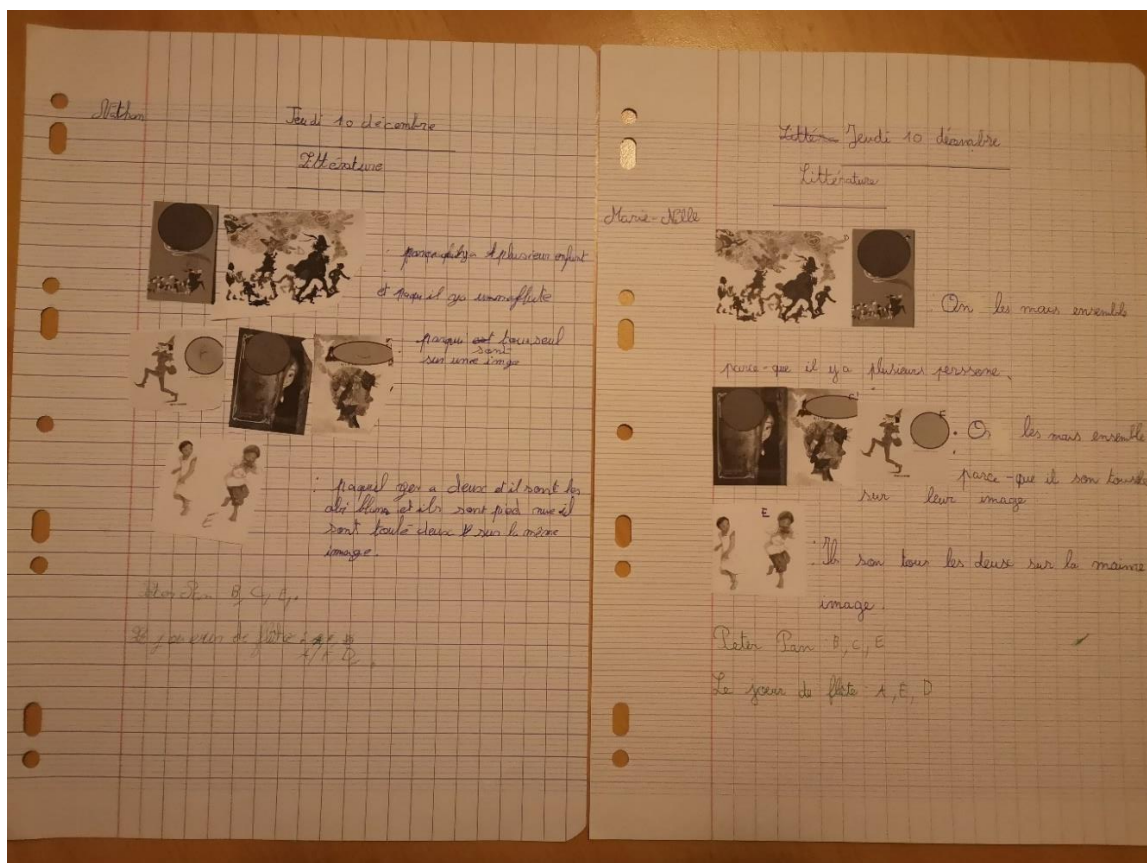 Nathan
Jeudi 10 décembre
Littérature
: parcequ'ilya plusieur enfant
et parqu'il ya unne flute
: parqui est touseul
sont
sur unne imge
: parqeil yen a deux et il sont les
abi blanc et ils sont pied nue il
sont toulé deux sur la même
image.
E
Peter Pan B, C, E,.
Le joueur de flûte :
Littér Jeudi 10 désambre
Littérature
Marie-Nelle
D
. On les mais ensemble
parce-que il y a plusieurs perssone.
E
. On les mais ensemble
parce-que il son tousele
sur leur image
E
: Ils son tous les deux sur la maime
image.
Peter Pan : B, C, E
Le joeur de flûte : A, E, D